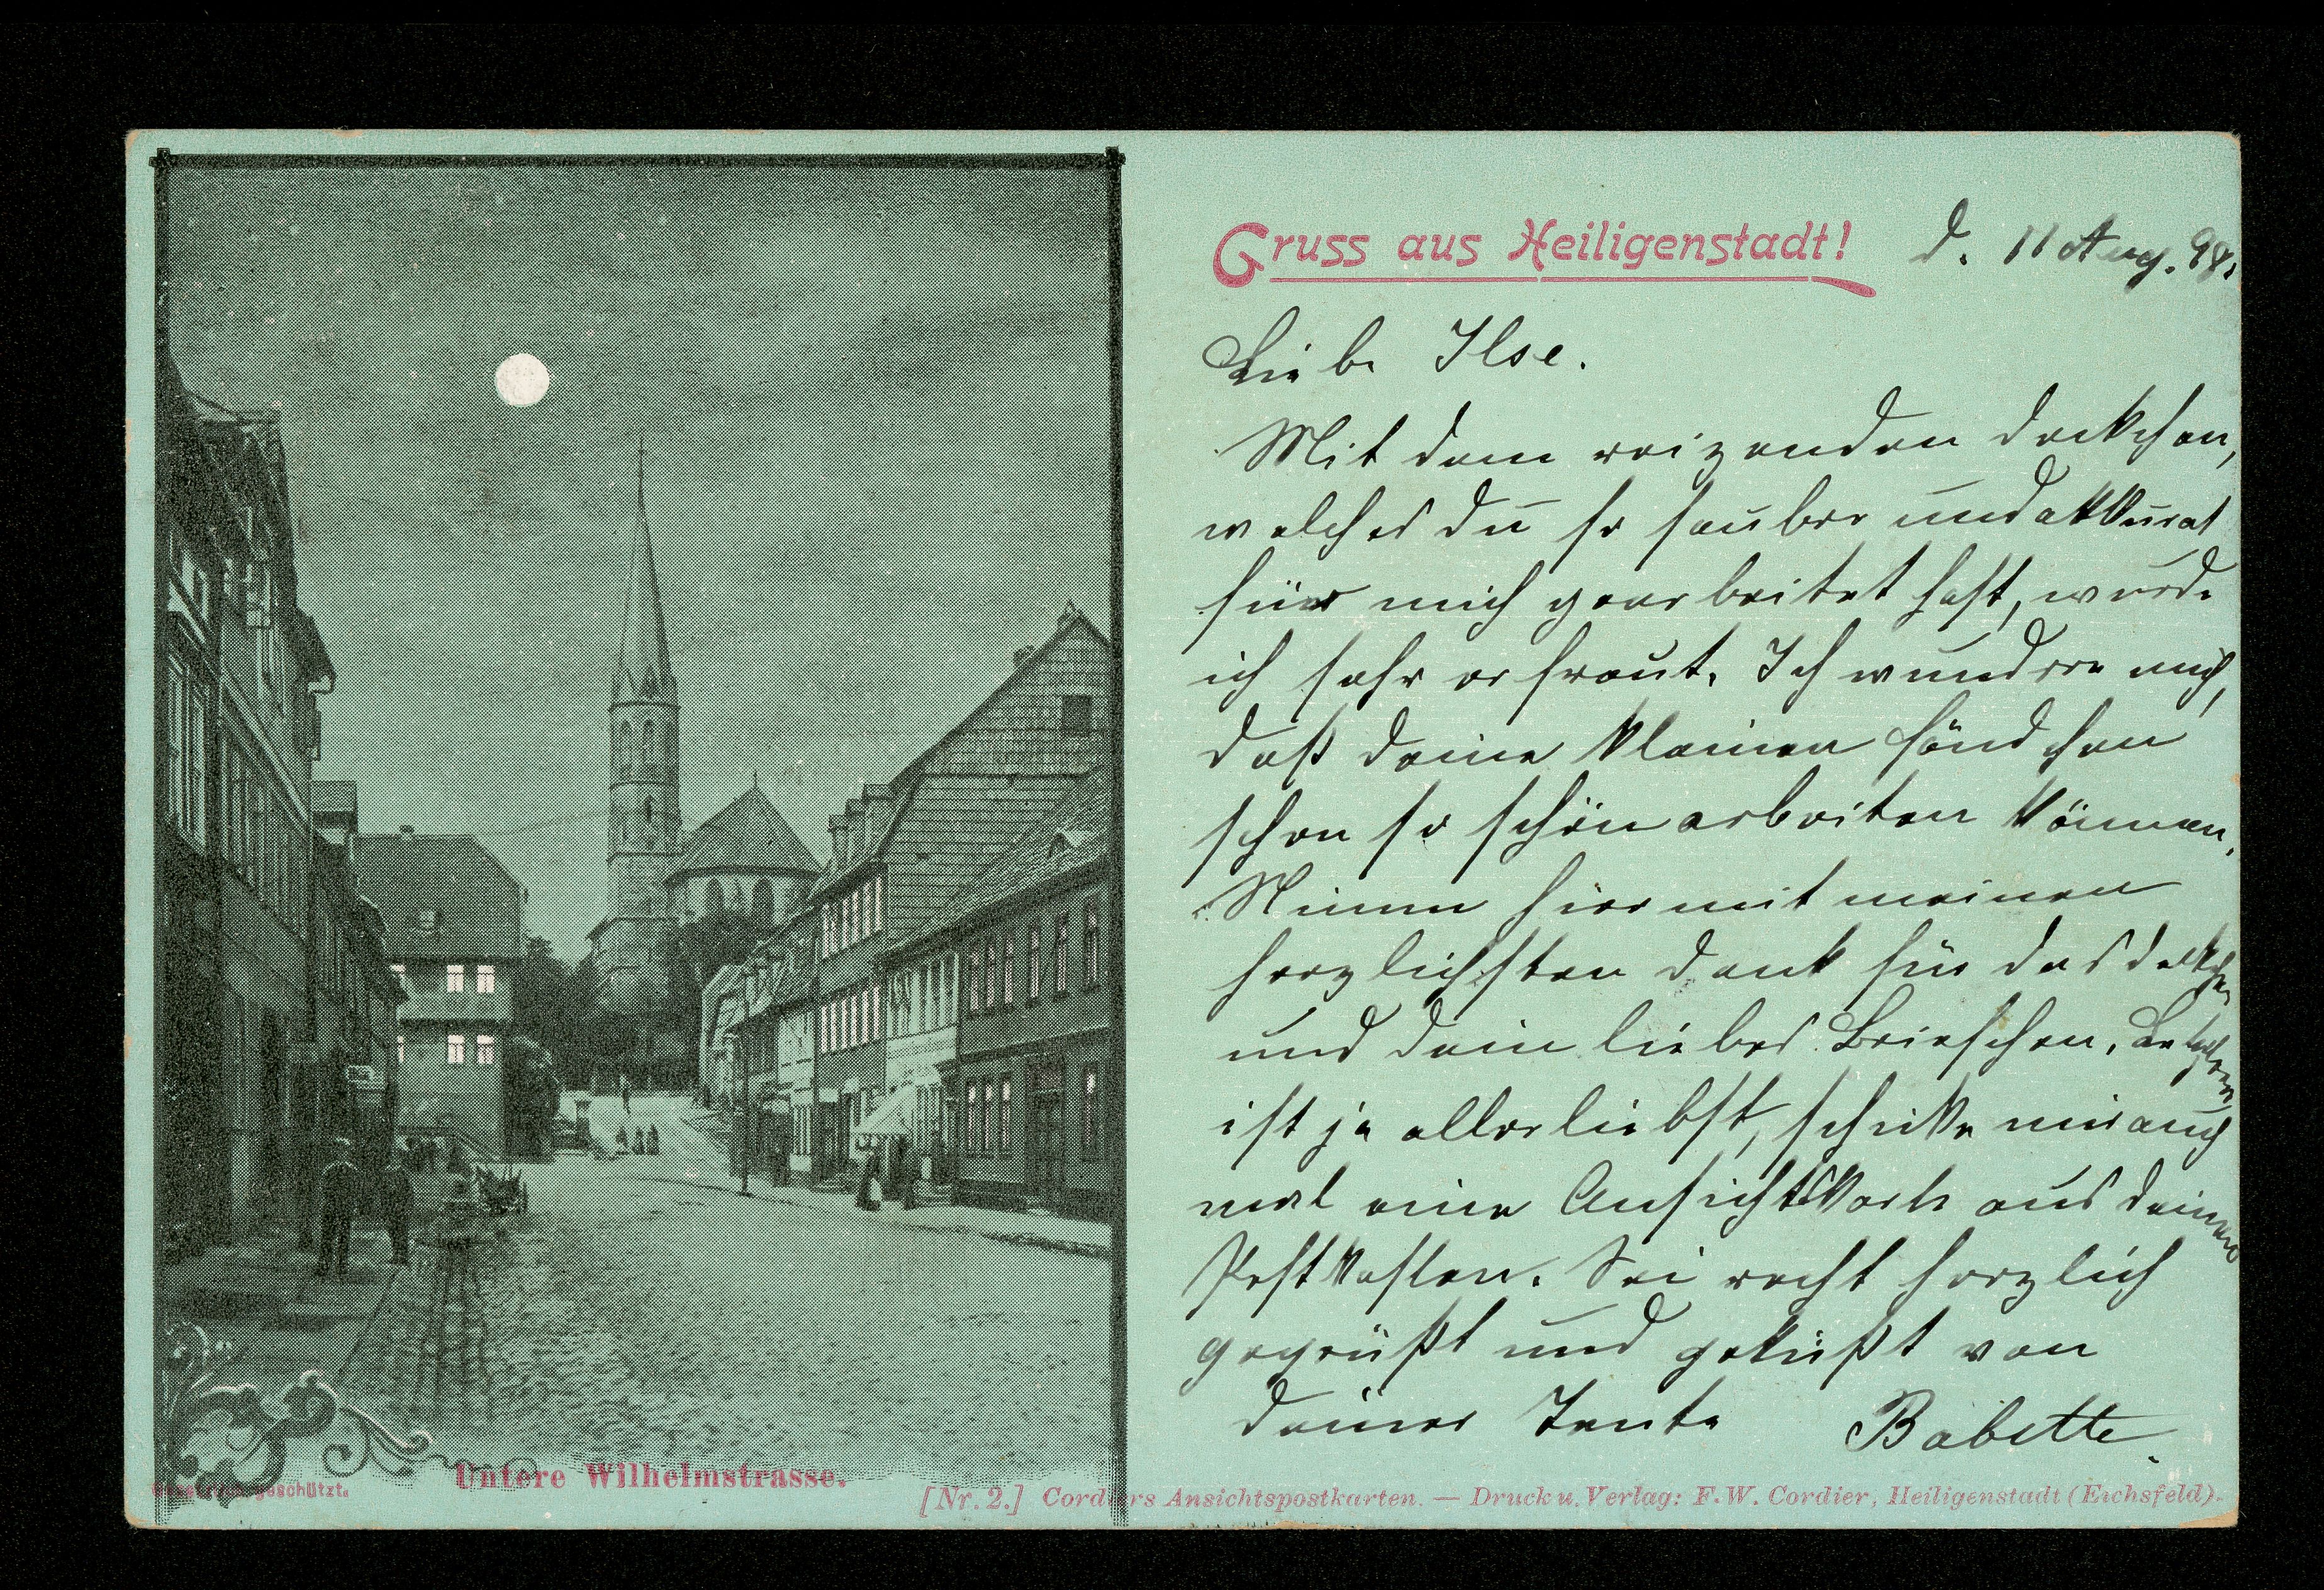 Gruss aus Heiligenstadt! d. 11 Aug. 98.
Liebe Ilse.
Mit dem reizenden Deckchen,
welches du so sauber und akkurat
für mich gearbeitet hast, wurde
ich sehr erfreut. Ich wundere mich,
daß deine kleinen Händchen
schon so schön arbeiten können.
Nimm hiermit meinen
herzlichsten Dank für das Deckchen
und dein liebes Briefchen.
ist ja allerliebst, schicke mir auch
mal eine Ansichtskarte aus deinem
Postkasten. Sei recht herzlich
gegrüßt und geküßt von
deiner Tante Babette.
Untere Wilhelmstrasse.
geschützt.
[Nr. 2.] Cordiers Ansichtspostkarten. — Druck u. Verlag: F. W. Cordier, Heiligenstadt (Eichsfeld).